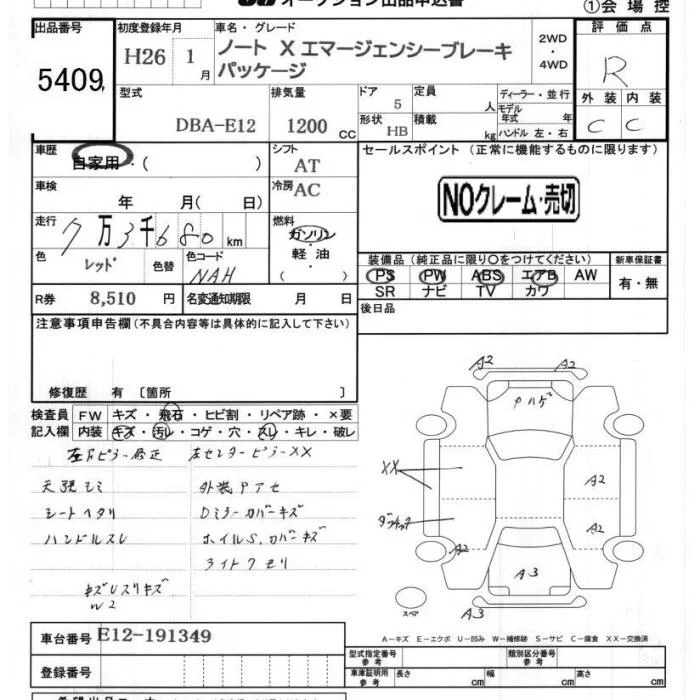 オークション出品申込書
①会場控
出品番号
5409
初度登録年月
H26 1月
車名・グレード
ノート X エマージェンシーブレーキ
パッケージ
2WD
・
4WD
評価点
R
外装 内装
C C
型式
DBA-E12
排気量
1200 cc
ドア
5
定員
人
形状
HB
積載
kg
ディーラー・並行
モデル
年式 年
ハンドル 左・右
車歴
自家用・( )
シフト
AT
車検
年 月( 日)
冷房
AC
走行
7万3千680 km
燃料
ガソリン
・
軽油
( )
色
レッド
色替
色コード
NAH
R券 8,510 円
名変通知期限 月 日
セールスポイント (正常に機能するものに限ります)
NOクレーム・売切
装備品 (純正品に限り○をつけてください)
PS PW ABS エアB AW
SR ナビ TV カワ
新車保証書
有・無
後日品
注意事項申告欄 (不具合内容等は具体的に記入して下さい)
修復歴 有 〔箇所 〕
検査員
記入欄
FW キズ・飛石・ヒビ割・リペア跡・×要
内装 キズ・汚レ・コゲ・穴・スレ・キレ・破レ
左センターピラーXX
天張シミ
シートヘタリ
ハンドルスレ
外装
Dミラーカバーキズ
ホイルS,カバーキズ
ライトクモリ
W2
A2 A2
XX
A2
A2
A2
A3
スペア
A3
A－キズ E－エクボ U－凹み W－補修跡 S－サビ C－腐食 XX－交換済
車台番号 E12-191349
登録番号
型式指定番号
参考
類別区分番号
参考
車庫証明用
参考
長さ cm 幅 cm 高さ cm